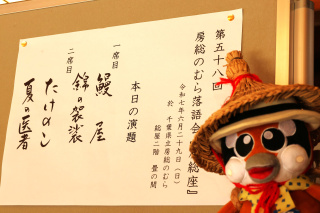 第五十八回
房総のむら落語会 総座』
令和七年六月二十九日(日)
於 千葉県立房総のむら
総屋二階 畳の間
本日の演題
一席目
鰻屋
錦の袈裟
二席目
たけのこ
夏の医者